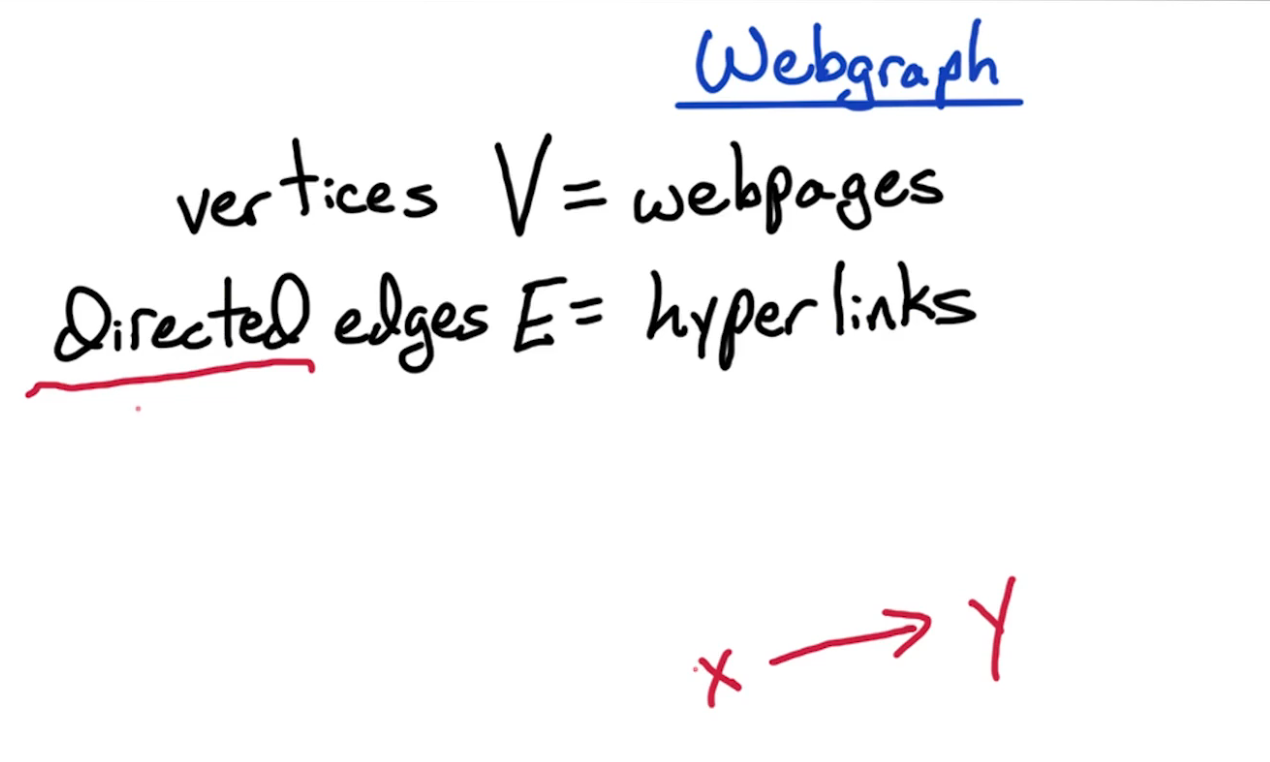 Webgraph
vertices V = webpages
Directed edges E = hyperlinks
x → y